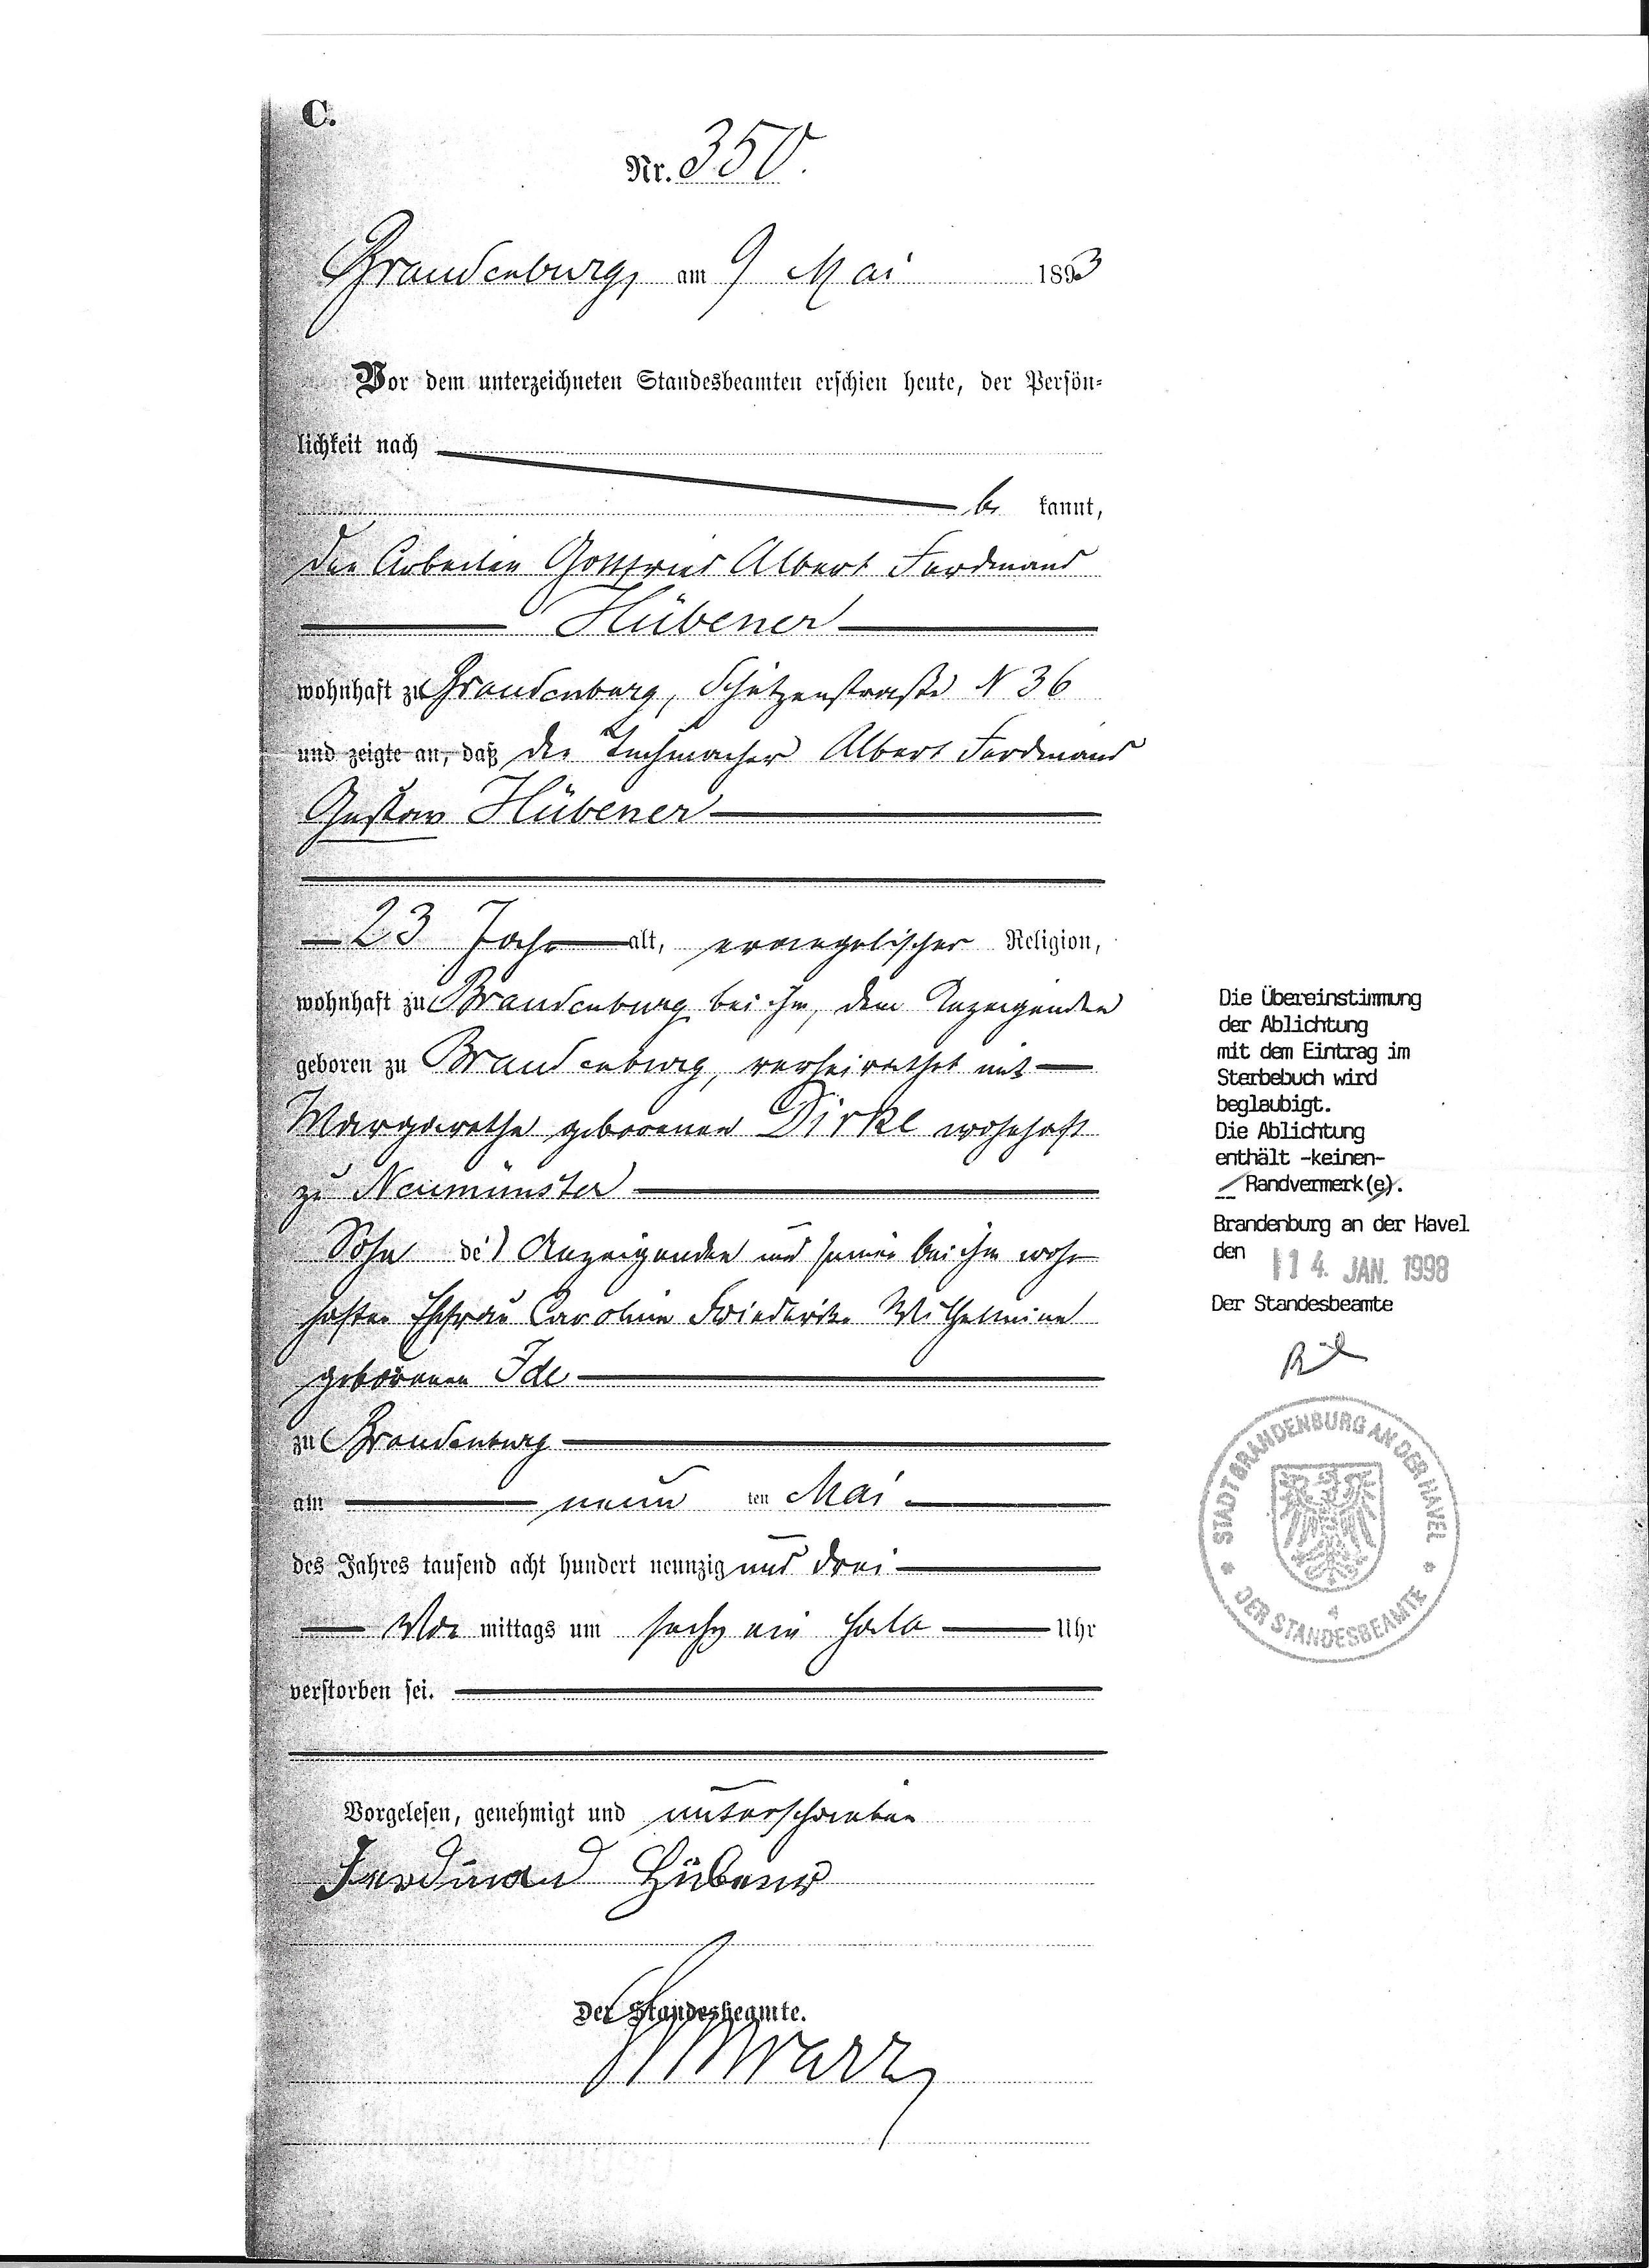 C.
Nr. 350.
Brandenburg, am 9 Mai 1893
Vor dem unterzeichneten Standesbeamten erschien heute, der Persön-
lichkeit nach
be kannt,
der Arbeiter Gottfried Albert Ferdinand
Hübener
wohnhaft zu Brandenburg, Schützenstraße N 36
und zeigte an, daß der Tuchmacher Albert Ferdinand
Gustav Hübener
23 Jahr alt, evangelischer Religion,
wohnhaft zu Brandenburg bei ihm, dem Anzeigenden
geboren zu Brandenburg, verheirathet mit
Margarethe geborenen Dirkl wohnhaft
zu Neumünster
Sohn des Anzeigenden und seiner bei ihm wohn
haften Ehefrau Caroline Friederike Wilhelmine
geborenen Ide
zu Brandenburg
am neun ten Mai
des Jahres tausend acht hundert neunzig und drei
Vor mittags um sechs ein halb Uhr
verstorben sei.
Vorgelesen, genehmigt und unterschrieben
Ferdinand Hübener
Der Standesbeamte.
Die Übereinstimmung
der Ablichtung
mit dem Eintrag im
Sterbebuch wird
beglaubigt.
Die Ablichtung
enthält -keinen-
Randvermerk(e).
Brandenburg an der Havel
den 14. JAN. 1998
Der Standesbeamte
STADT BRANDENBURG AN DER HAVEL
4
* DER STANDESBEAMTE *